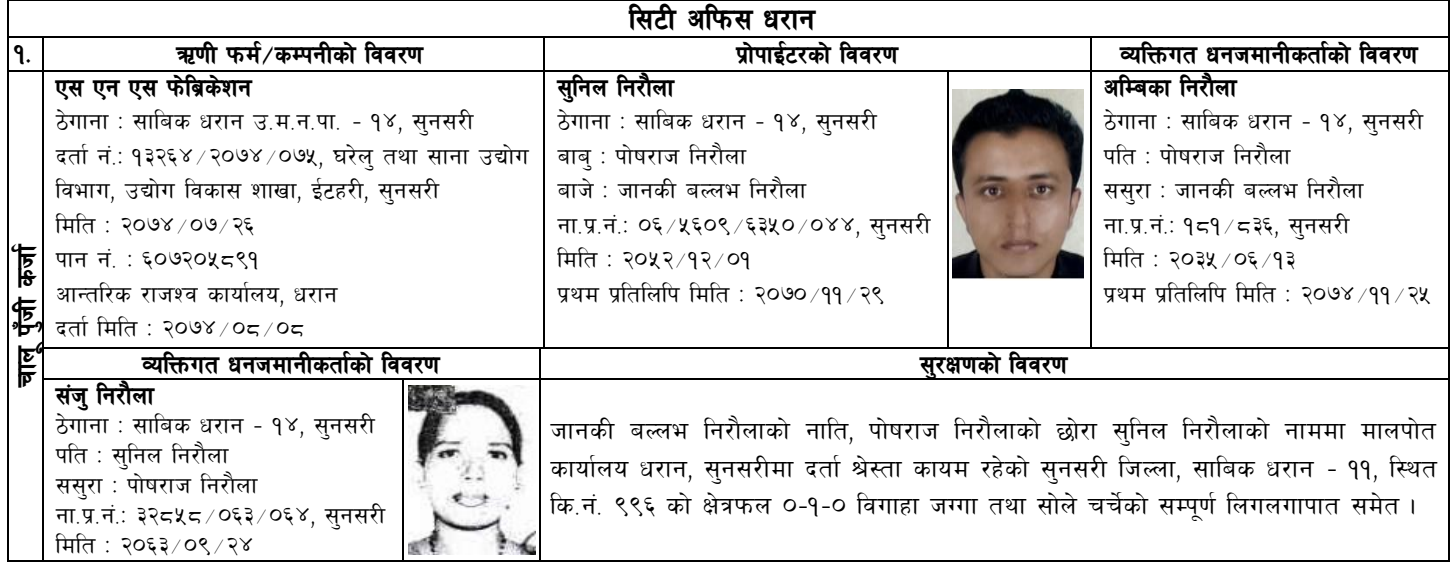 सिटी अफिस धरान
१.
ऋणी फर्म/कम्पनीको विवरण
प्रोपाईटरको विवरण
व्यक्तिगत धनजमानीकर्ताको विवरण
चालू पूँजी कर्जा
एस एन एस फेब्रिकेशन
ठेगाना : साबिक धरान उ.म.न.पा. - १४, सुनसरी
दर्ता नं.: १३२६४/२०७४/०७५, घरेलु तथा साना उद्योग
विभाग, उद्योग विकास शाखा, ईटहरी, सुनसरी
मिति : २०७४/०७/२६
पान नं. : ६०७२०५८९१
आन्तरिक राजश्व कार्यालय, धरान
दर्ता मिति : २०७४/०८/०८
सुनिल निरौला
ठेगाना : साबिक धरान - १४, सुनसरी
बाबु : पोषराज निरौला
बाजे : जानकी बल्लभ निरौला
ना.प्र.नं.: ०६/५६०९/६३५०/०४४, सुनसरी
मिति : २०५२/१२/०१
प्रथम प्रतिलिपि मिति : २०७०/११/२९
अम्बिका निरौला
ठेगाना : साबिक धरान - १४, सुनसरी
पति : पोषराज निरौला
ससुरा : जानकी बल्लभ निरौला
ना.प्र.नं.: १८१/८३६, सुनसरी
मिति : २०३५/०६/१३
प्रथम प्रतिलिपि मिति : २०७४/११/२५
व्यक्तिगत धनजमानीकर्ताको विवरण
सुरक्षणको विवरण
संजु निरौला
ठेगाना : साबिक धरान - १४, सुनसरी
पति : सुनिल निरौला
ससुरा : पोषराज निरौला
ना.प्र.नं.: ३२८५८/०६३/०६४, सुनसरी
मिति : २०६३/०९/२४
जानकी बल्लभ निरौलाको नाति, पोषराज निरौलाको छोरा सुनिल निरौलाको नाममा मालपोत
कार्यालय धरान, सुनसरीमा दर्ता श्रेस्ता कायम रहेको सुनसरी जिल्ला, साबिक धरान - ११, स्थित
कि.नं. ९९६ को क्षेत्रफल ०-१-० विगाहा जग्गा तथा सोले चर्चेको सम्पूर्ण लिगलगापात समेत ।